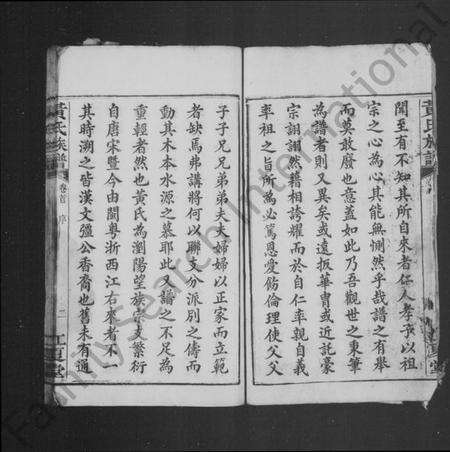 黃氏族譜
聞至有不知其所自來者仁人孝子以祖
宗之心為心其能無惻然乎哉譜之有舉
而莫敢廢也意蓋如此乃吾觀世之秉筆
為譜者則又異矣或遠扳華胄或近託豪
宗詡詡然藉相誇耀而於自仁率親自義
率祖之旨所為必篤恩愛飭倫理使父父
子子兄兄弟弟夫夫婦婦以正家而立範
者缺焉弗講將何以聯支分派別之儔而
動其木本水源之慕耶此又譜之不足為
重輕者然也黃氏為瀏陽望族宗支繁衍
自唐宋暨今由閩粵浙西江右來者不一
其時溯之皆漢文彊公香裔也舊未有通
黃氏族譜
卷首
序
二
江夏堂
FamilySearch International